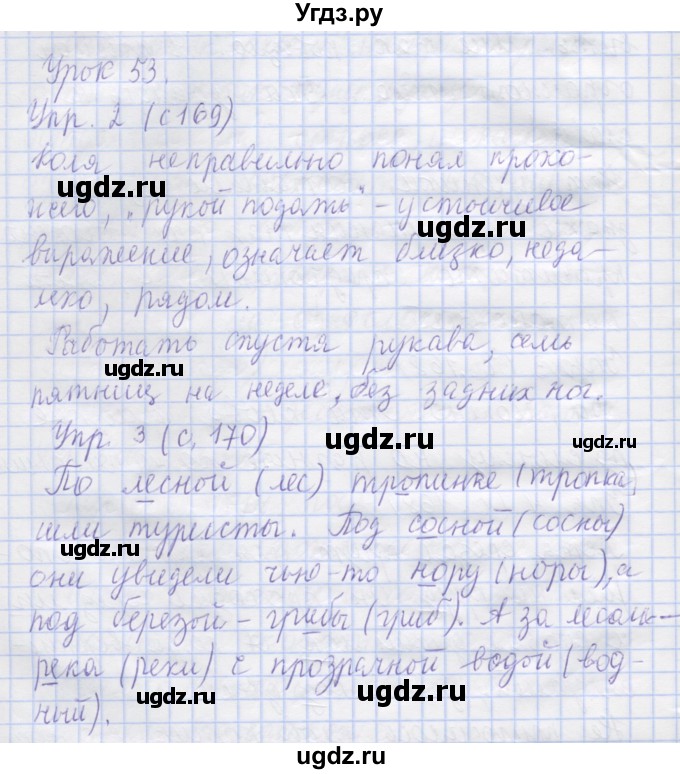 Угдз.ру
Урок 53.
Упр. 2 (с 169)
Коля неправильно понял прохо-
жего, "рукой подать" - устойчивое
выражение, означает близко, неда-
леко, рядом.
Работать спустя рукава, семь
пятниц на неделе, без задних ног.
Упр. 3 (с. 170)
По лесной (лес) тропинке (тропка)
шли туристы. Под сосной (сосны)
они увидели чью-то нору (норы), а
под березой - грибы (гриб). А за лесом -
река (реки) с прозрачной водой (вод-
ный).
ugdz.ru
ugdz.ru
ugdz.ru
ugdz.ru
ugdz.ru
ugdz.ru
ugdz.ru
ugdz.ru
ugdz.ru